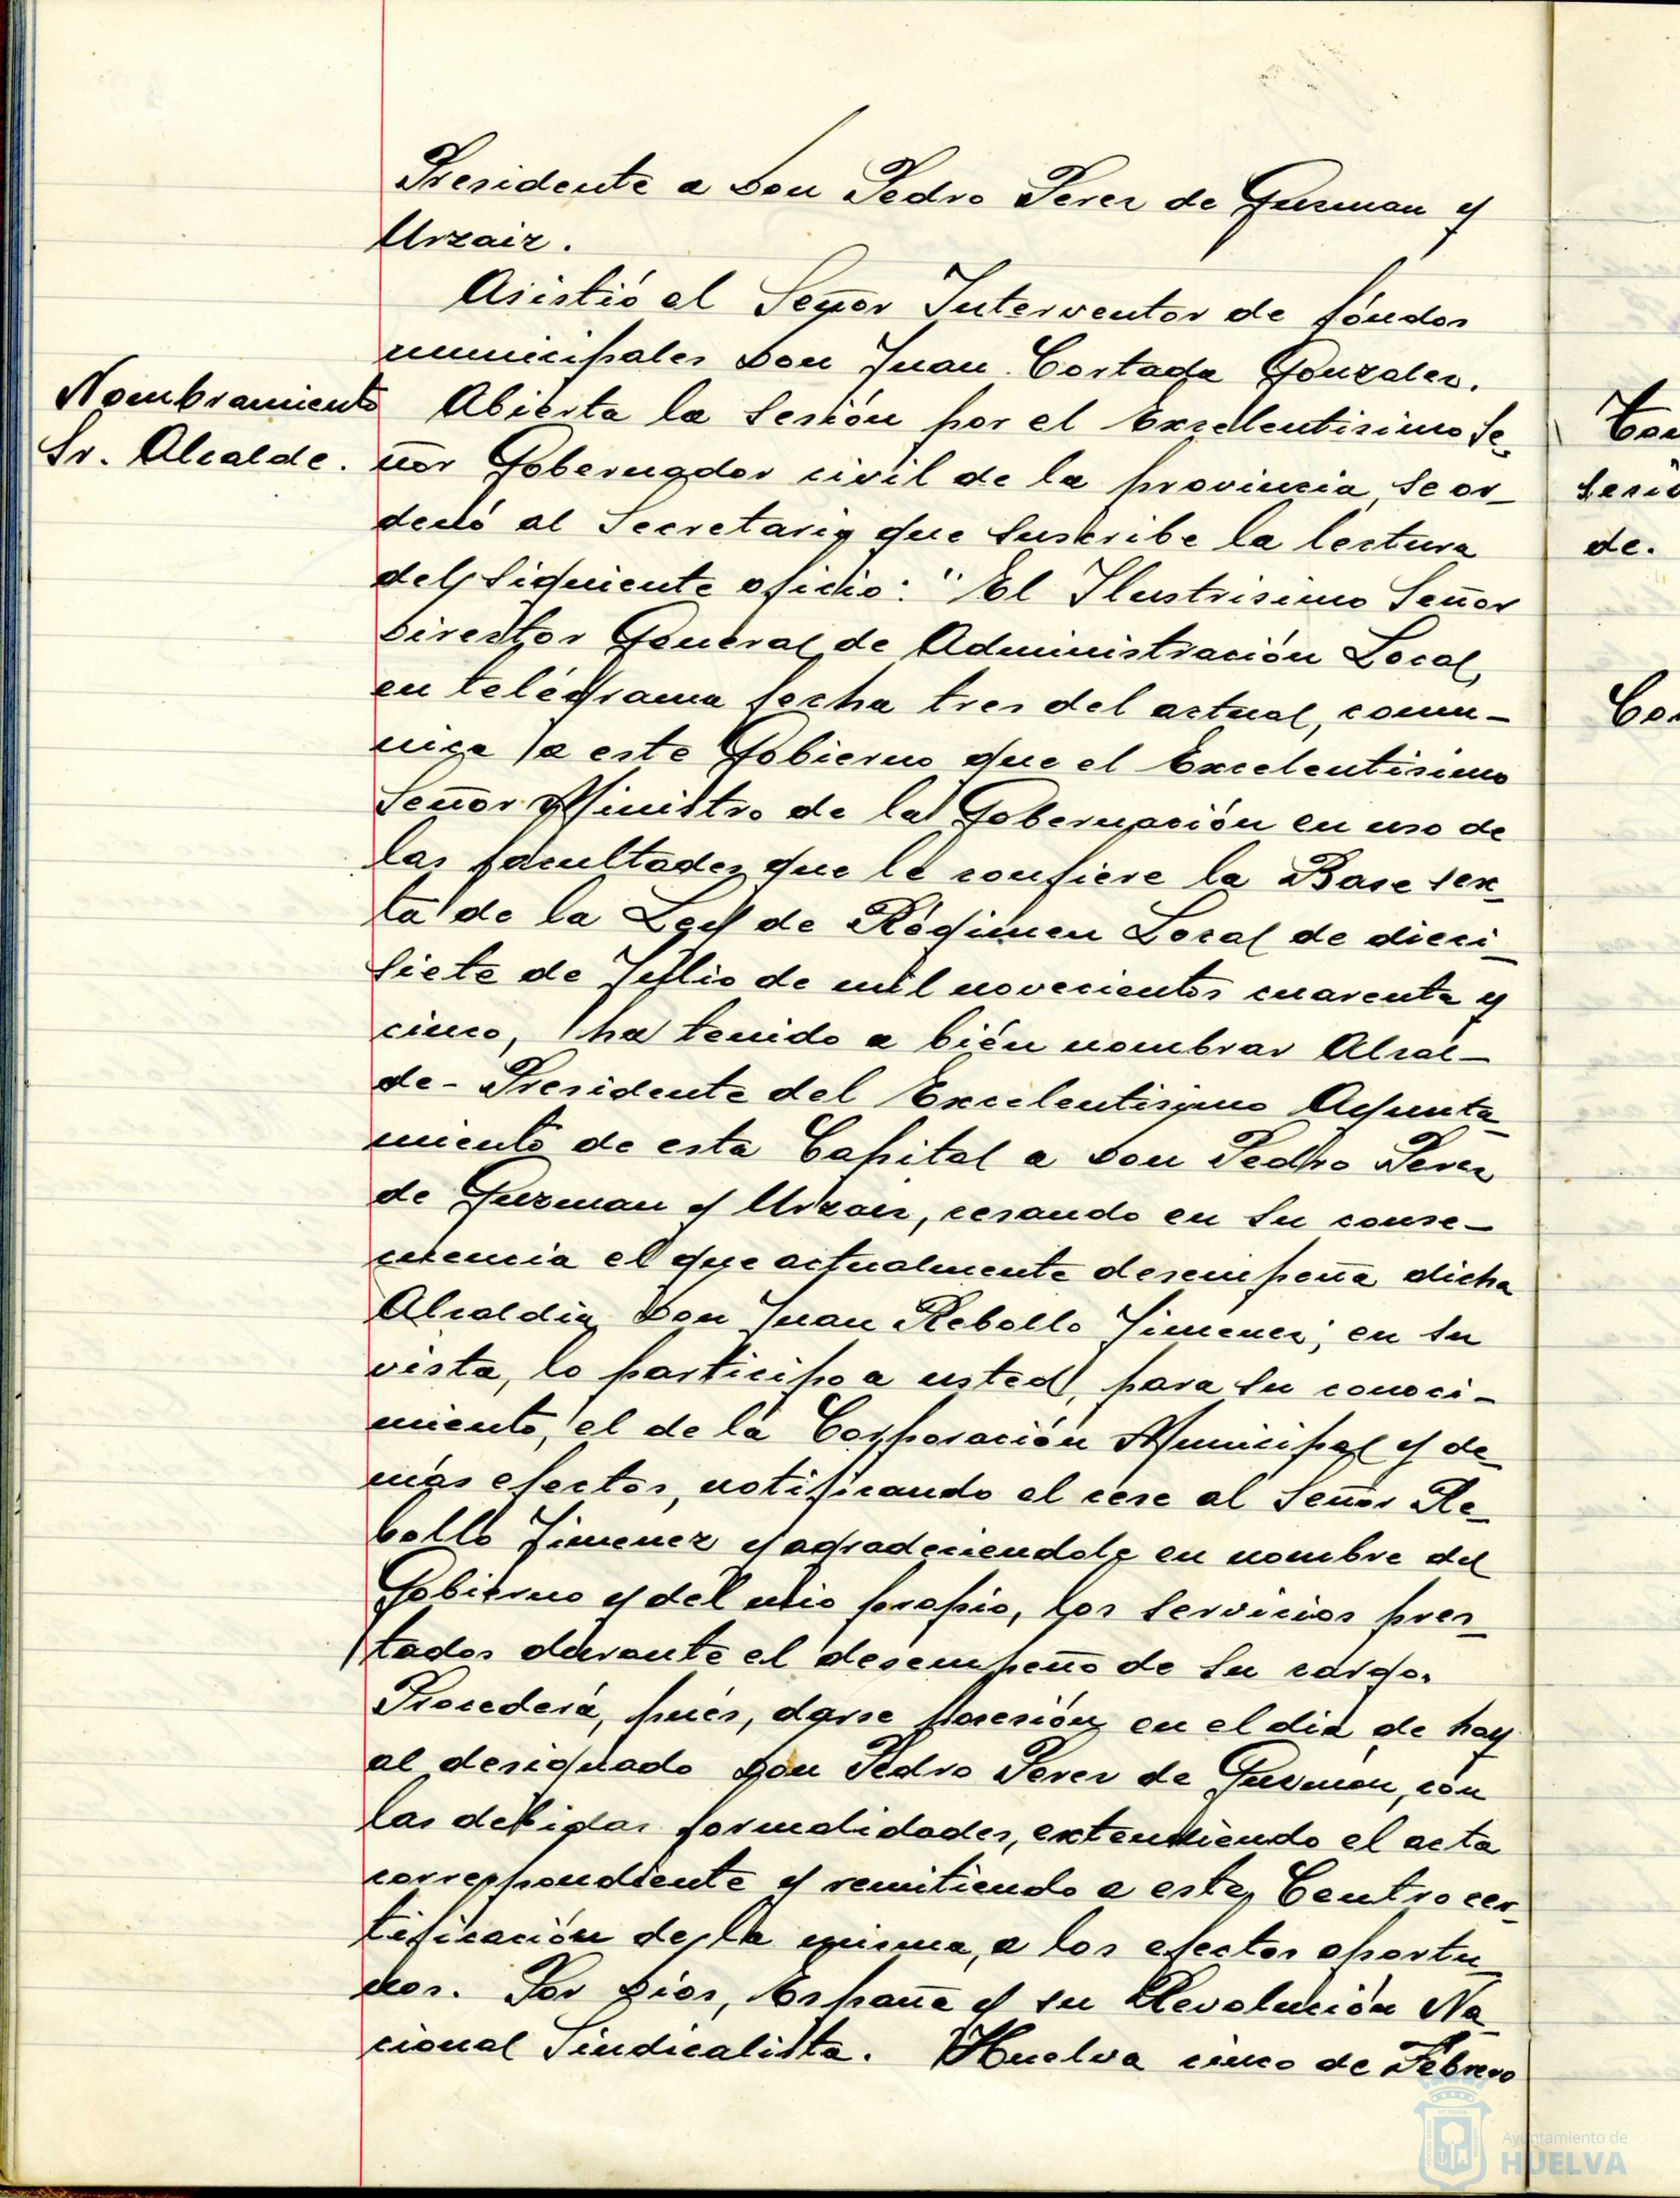 Presidente a Don Pedro Perez de Guzman y
Urzaiz.
Asistió el Señor Interventor de fóndos
municipales Don Juan Cortada Gonzalez.
Nombramiento
Sr. Alcalde.
Abierta la Sesión por el Excelentisimo Se-
ñor Gobernador civil de la provincia, se or-
denó al Secretario que suscribe la lectura
del siguiente oficio: "El Ilustrisimo Señor
Director General de Administración Local,
en telégrama fecha tres del actual, comu-
nica a este Gobierno que el Excelentisimo
Señor Ministro de la Gobernación en uso de
las facultades que le confiere la Base sex-
ta de la Ley de Régimen Local de dieci-
siete de Julio de mil novecientos cuarenta y
cinco, ha tenido a bién nombrar Alcal-
de-Presidente del Excelentisimo Ayunta-
miento de esta Capital a Don Pedro Perez
de Guzman y Urzaiz, cesando en su conse-
cuencia el que actualmente desempeña dicha
Alcaldia Don Juan Rebollo Jimenez; en su
vista, lo participo a usted, para su conoci-
miento, el de la Corporación Municipal y de-
más efectos, notificando el cese al Señor Re-
bollo Jimenez y agradeciendole en nombre del
Gobierno y del mio propio, los servicios pres-
tados durante el desempeño de su cargo.
Procederá, pués, darse posesión en el dia de hoy
al designado Don Pedro Perez de Guzmán, con
las debidas formalidades, extendiendo el acta
correspondiente y remitiendo a este Centro cer-
tificación de la misma, a los efectos oportu-
nos. Por Dios, España y su Revolución Na-
cional Sindicalista. Huelva cinco de Febrero
sesió
de.
Ayuntamiento de
HUELVA